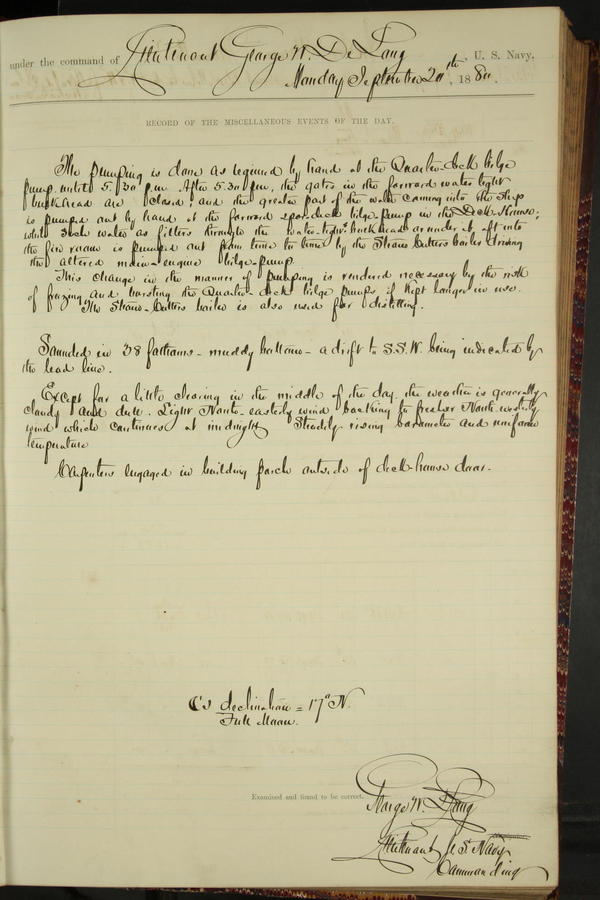 under the command of Lieutenant George W. De Long, U. S. Navy,
Monday September 20th, 1880.
RECORD OF THE MISCELLANEOUS EVENTS OF THE DAY.
The pumping is done as required by hand at the Quarter-deck bilge
pump until 5.30 p.m. After 5.30 p.m. the gates in the forward water tight
bulkhead are closed, and the greater part of the water coming into the ship
is pumped out by hand at the forward spardeck bilge pump in the Deck-House;
while such water as filters through the water-tight bulkhead or under it aft into
the fire room is pumped out from time to time by the Steam Cutters boiler driving
the altered main-engine bilge-pump.
This change in the manner of pumping is rendered necessary by the risk
of freezing and bursting the Quarter-deck bilge pumps if kept longer in use.
The Steam-Cutters boiler is also used for distilling.
Sounded in 38 fathoms - muddy bottom - a drift to S.S.W. being indicated by
the lead line.
Except for a little clearing in the middle of the day the weather is generally
cloudy and dull. Light North-easterly wind backing to fresher North-westerly
wind which continues at midnight. Steadily rising barometer and uniform
temperature
Carpenters engaged in building porch outside of deck-house door.
C's declination = 17° N.
Full Moon.
Examined and found to be correct.
George W. De Long
Lieutenant U.S. Navy
Commanding